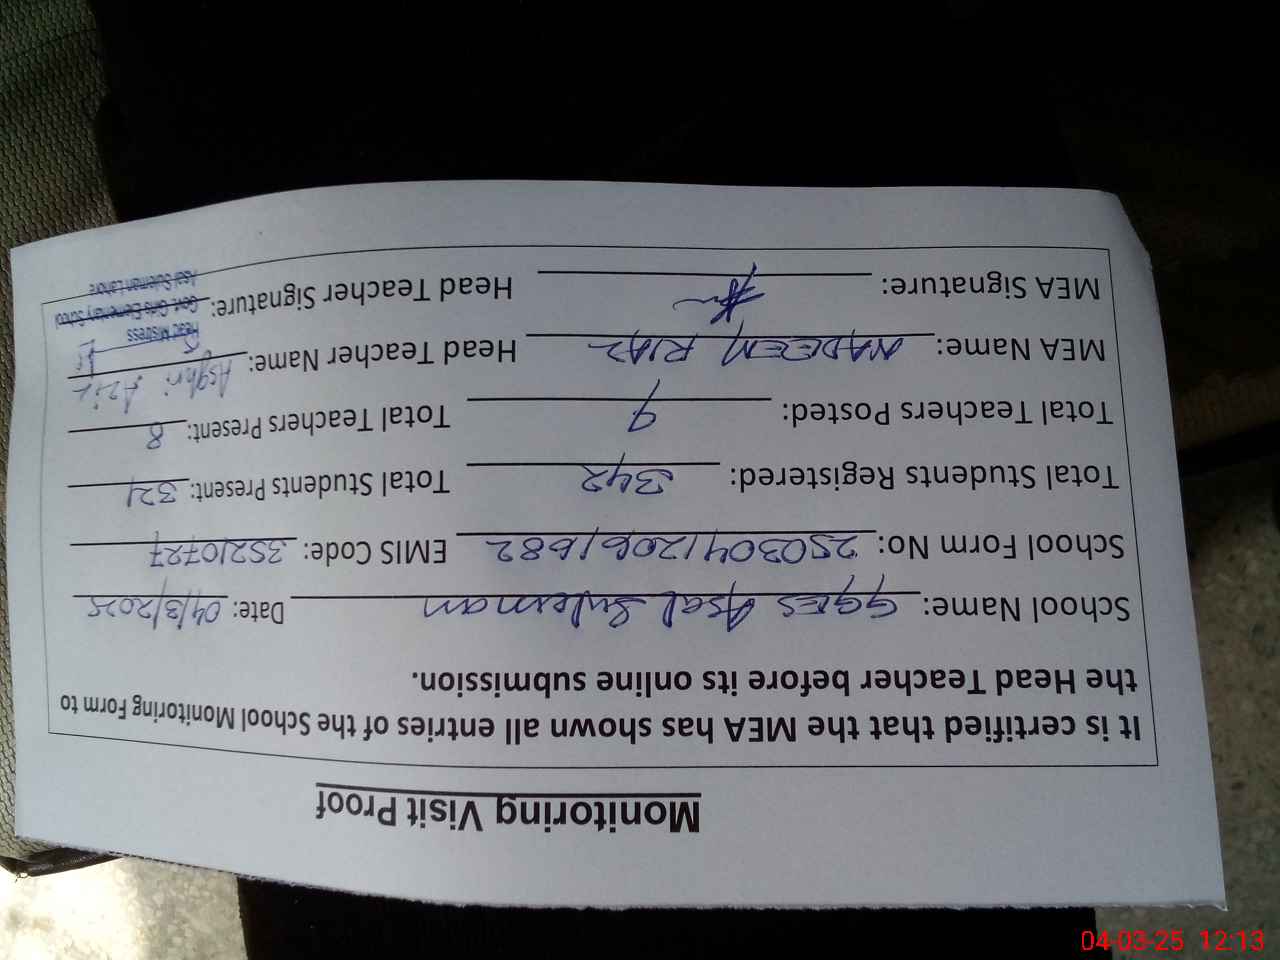 Monitoring Visit Proof
It is certified that the MEA has shown all entries of the School Monitoring Form to
the Head Teacher before its online submission.
School Name: GGES Asal Suleman Date: 04/3/2025
School Form No: 25030412061682 EMIS Code: 35210727
Total Students Registered: 342 Total Students Present: 321
Total Teachers Posted: 9 Total Teachers Present: 8
MEA Name: NADEEM RIAZ Head Teacher Name: Asghri Aziz
MEA Signature: Head Teacher Signature:
Head Mistress
Govt. Girls Elementary School
Asal Suleman Lahore
04-03-25 12:13